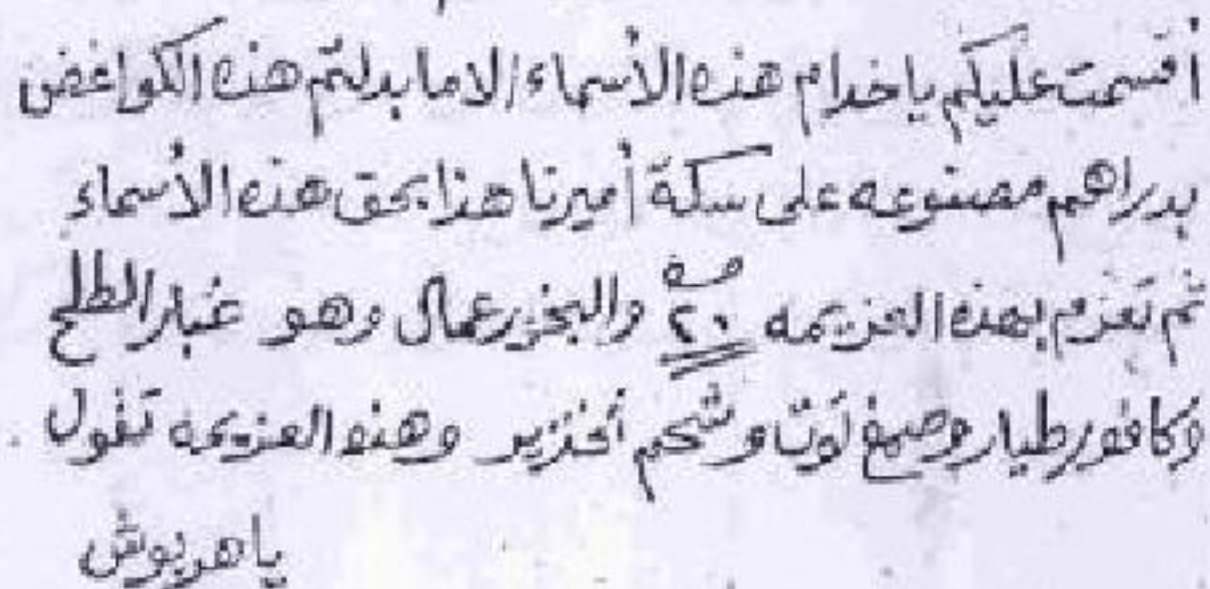 أقسمت عليكم ياخدام هذه الأسماء الا ما بدلتم هذه الكواغض
بدراهم مصنوعه على سكة أميرنا هذا بحق هذه الأسماء
ثم تعزم بهذه العزيمه ٢٠ مرة والبخور عمال وهو غبار الطلح
وكافور طيار وصمغ توت وشحم الخنزير وهذه العزيمه تقول
ياهديوش